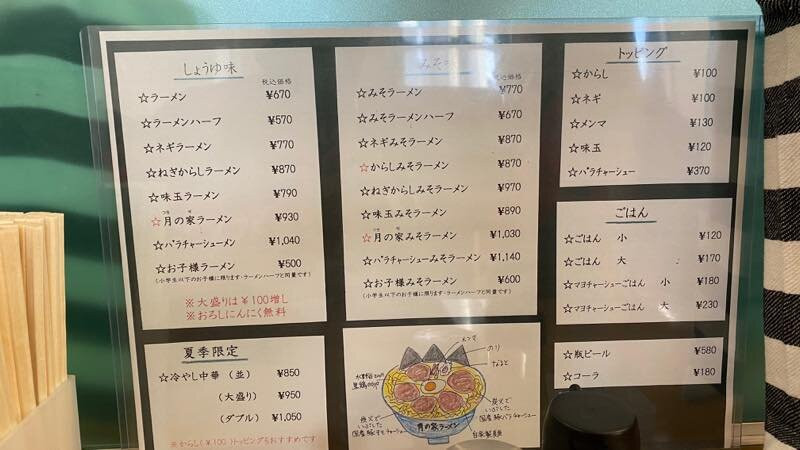 しょうゆ味
税込価格
☆ラーメン ¥670
☆ラーメンハーフ ¥570
☆ネギラーメン ¥770
☆ねぎからしラーメン ¥870
☆味玉ラーメン ¥790
☆月の家ラーメン ¥930
☆バラチャーシューメン ¥1,040
☆お子様ラーメン ¥500
(小学生以下のお子様に限ります・ラーメンハーフと同量です)
※大盛りは¥100増し
※おろしにんにく無料
夏季限定
☆冷やし中華 (並) ¥850
(大盛り) ¥950
(ダブル) ¥1,050
※からし(¥100)トッピングもおすすめです
みそ
税込価格
☆みそラーメン ¥770
☆みそラーメンハーフ ¥670
☆ネギみそラーメン ¥870
☆からしみそラーメン ¥870
☆ねぎからしみそラーメン ¥970
☆味玉みそラーメン ¥890
☆月の家みそラーメン ¥1,030
☆バラチャーシューみそラーメン ¥1,140
☆お子様みそラーメン ¥600
(小学生以下のお子様に限ります・ラーメンハーフと同量です)
メンマ
のり
なると
炭火で
国産豚
炭火で
国産豚バラチャーシュー
自家製麺
月の家ラーメン
トッピング
☆からし ¥100
☆ネギ ¥100
☆メンマ ¥130
☆味玉 ¥120
☆バラチャーシュー ¥370
ごはん
☆ごはん 小 ¥120
☆ごはん 大 ¥170
☆マヨチャーシューごはん 小 ¥180
☆マヨチャーシューごはん 大 ¥230
☆瓶ビール ¥580
☆コーラ ¥180